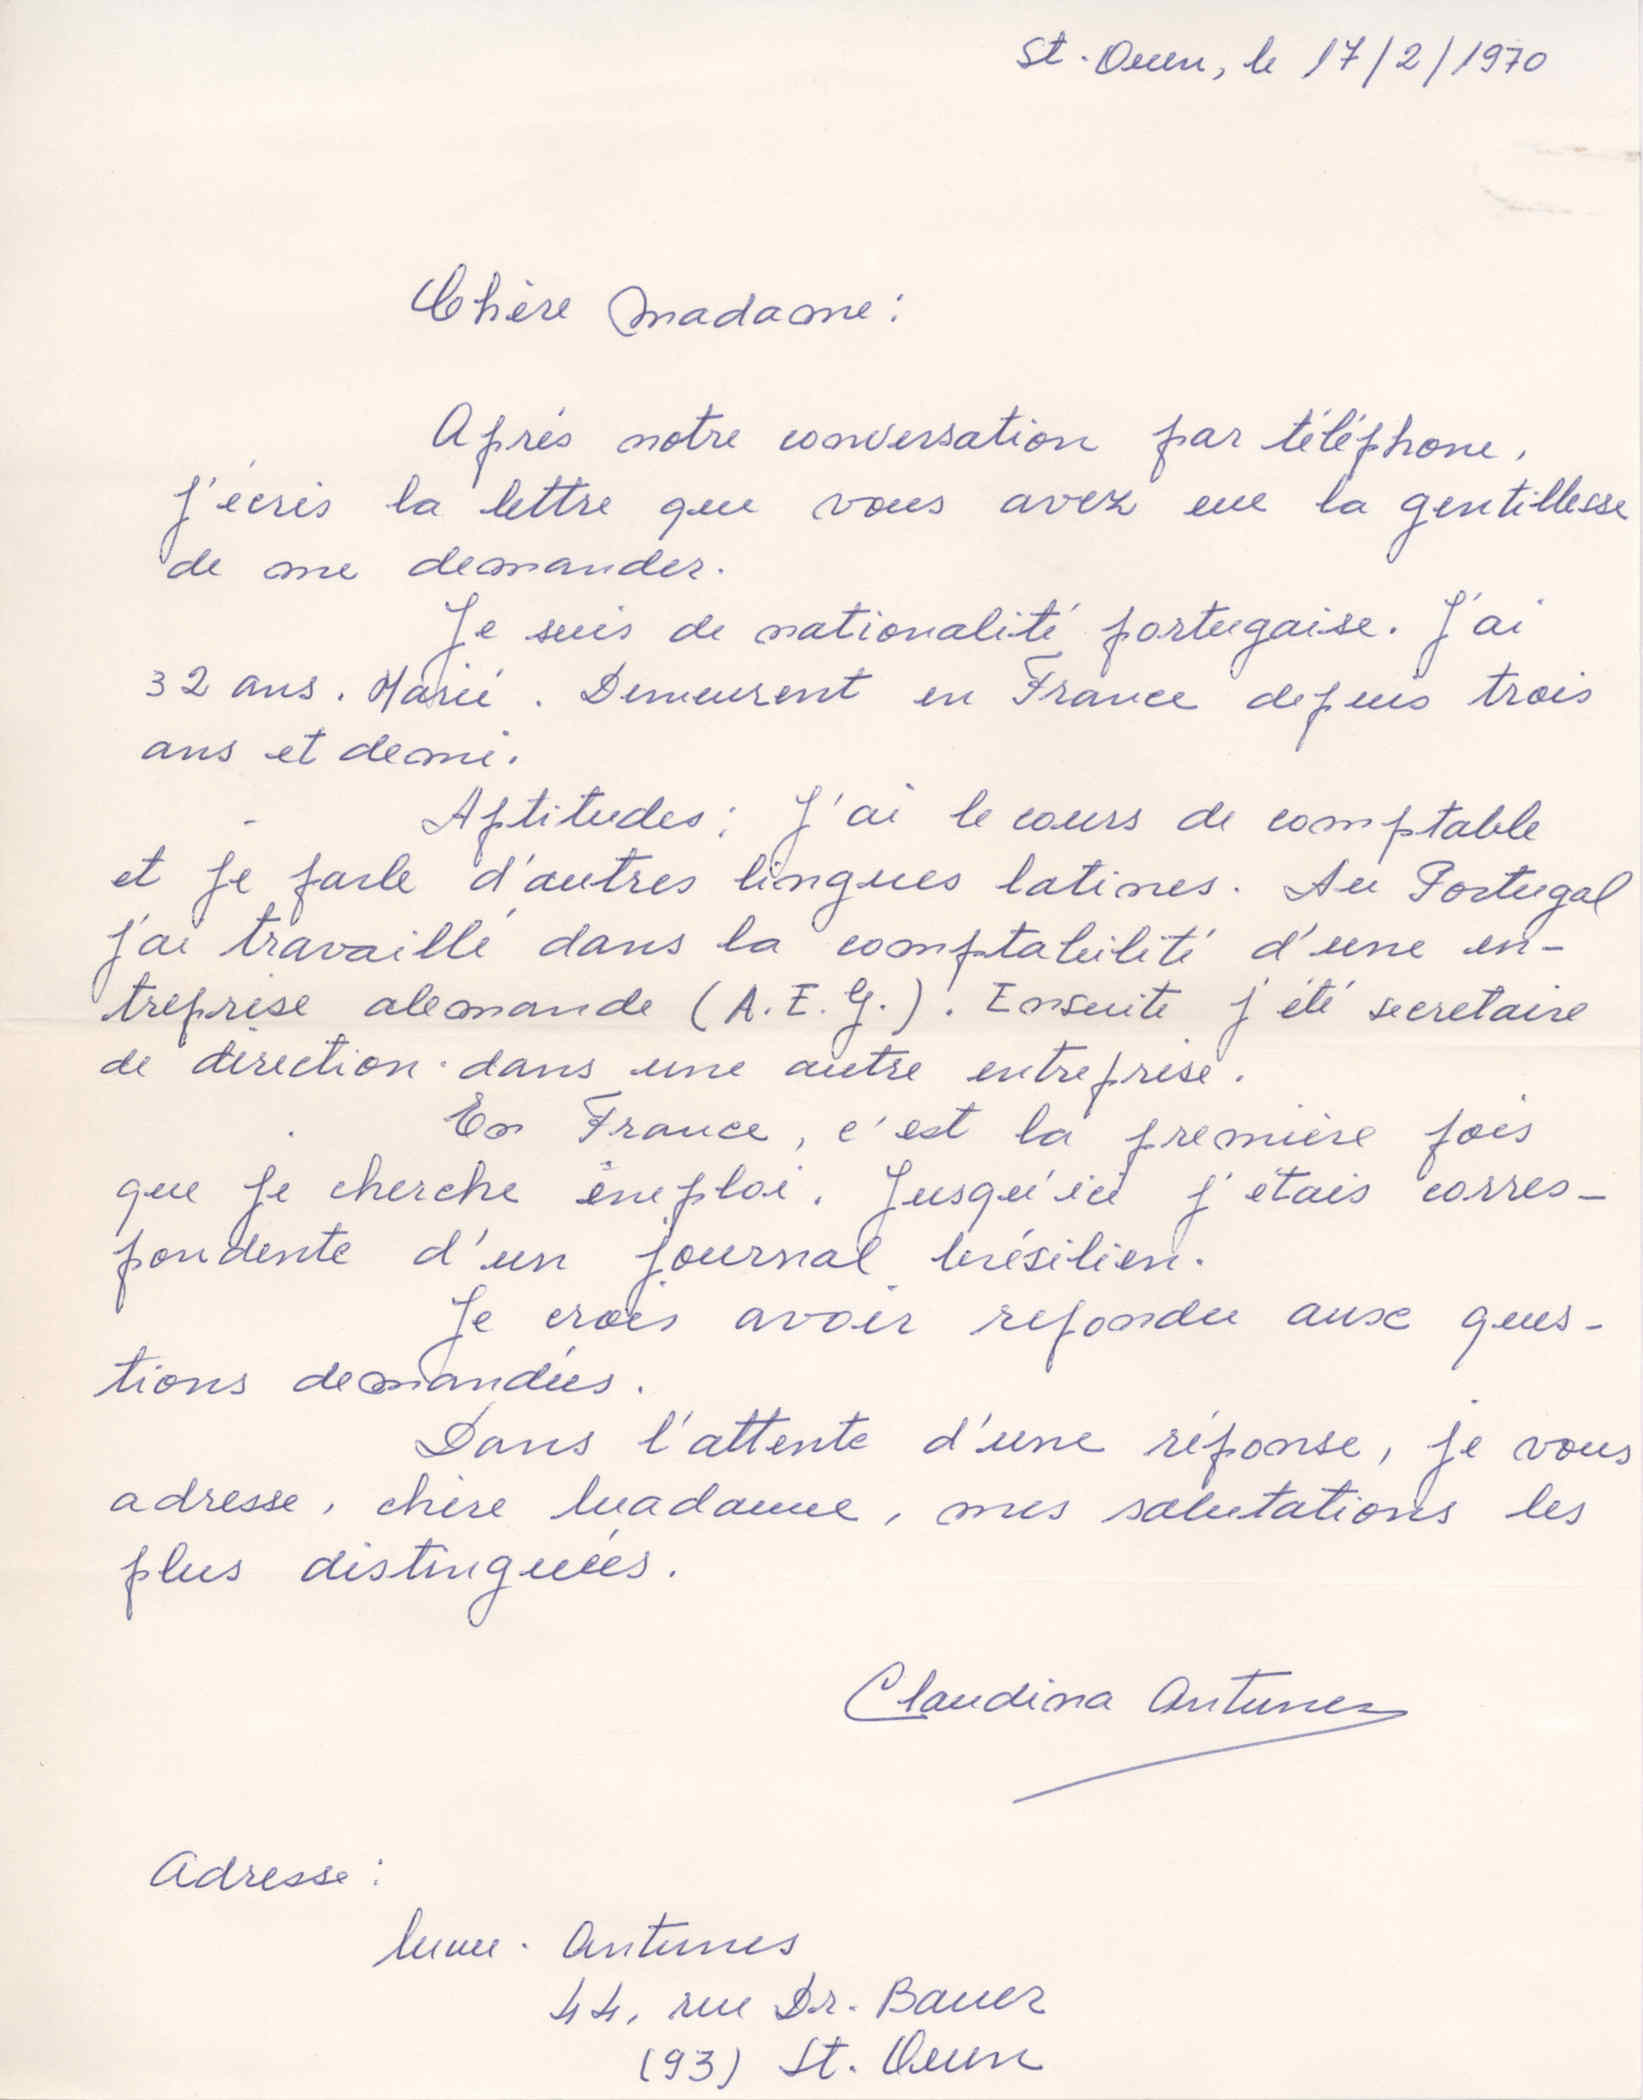 St. Ouen, le 17/2/1970
Chère Madame :
Après notre conversation par téléphone,
j'écris la lettre que vous avez eue la gentillesse
de me demander.
Je suis de nationalité portugaise. J'ai
32 ans. Marié. Demeurent en France depuis trois
ans et demi.
Aptitudes : J'ai le cours de comptable
et je parle d'autres lingues latines. Au Portugal
j'ai travaillé dans la comptabilité d'une en-
treprise alemande (A.E.G.). Ensuite j'été secretaire
de direction dans une autre entreprise.
En France, c'est la première fois
que je cherche emploi. Jusqu'ici j'étais corres-
pondente d'un journal brésilien.
Je crois avoir repondu aux ques-
tions demandées.
Dans l'attente d'une réponse, je vous
adresse, chère Madame, mes salutations les
plus distinguées.
Claudina Antunes
Adresse :
Mme. Antunes
44, rue Dr. Bauer
(93) St. Ouen